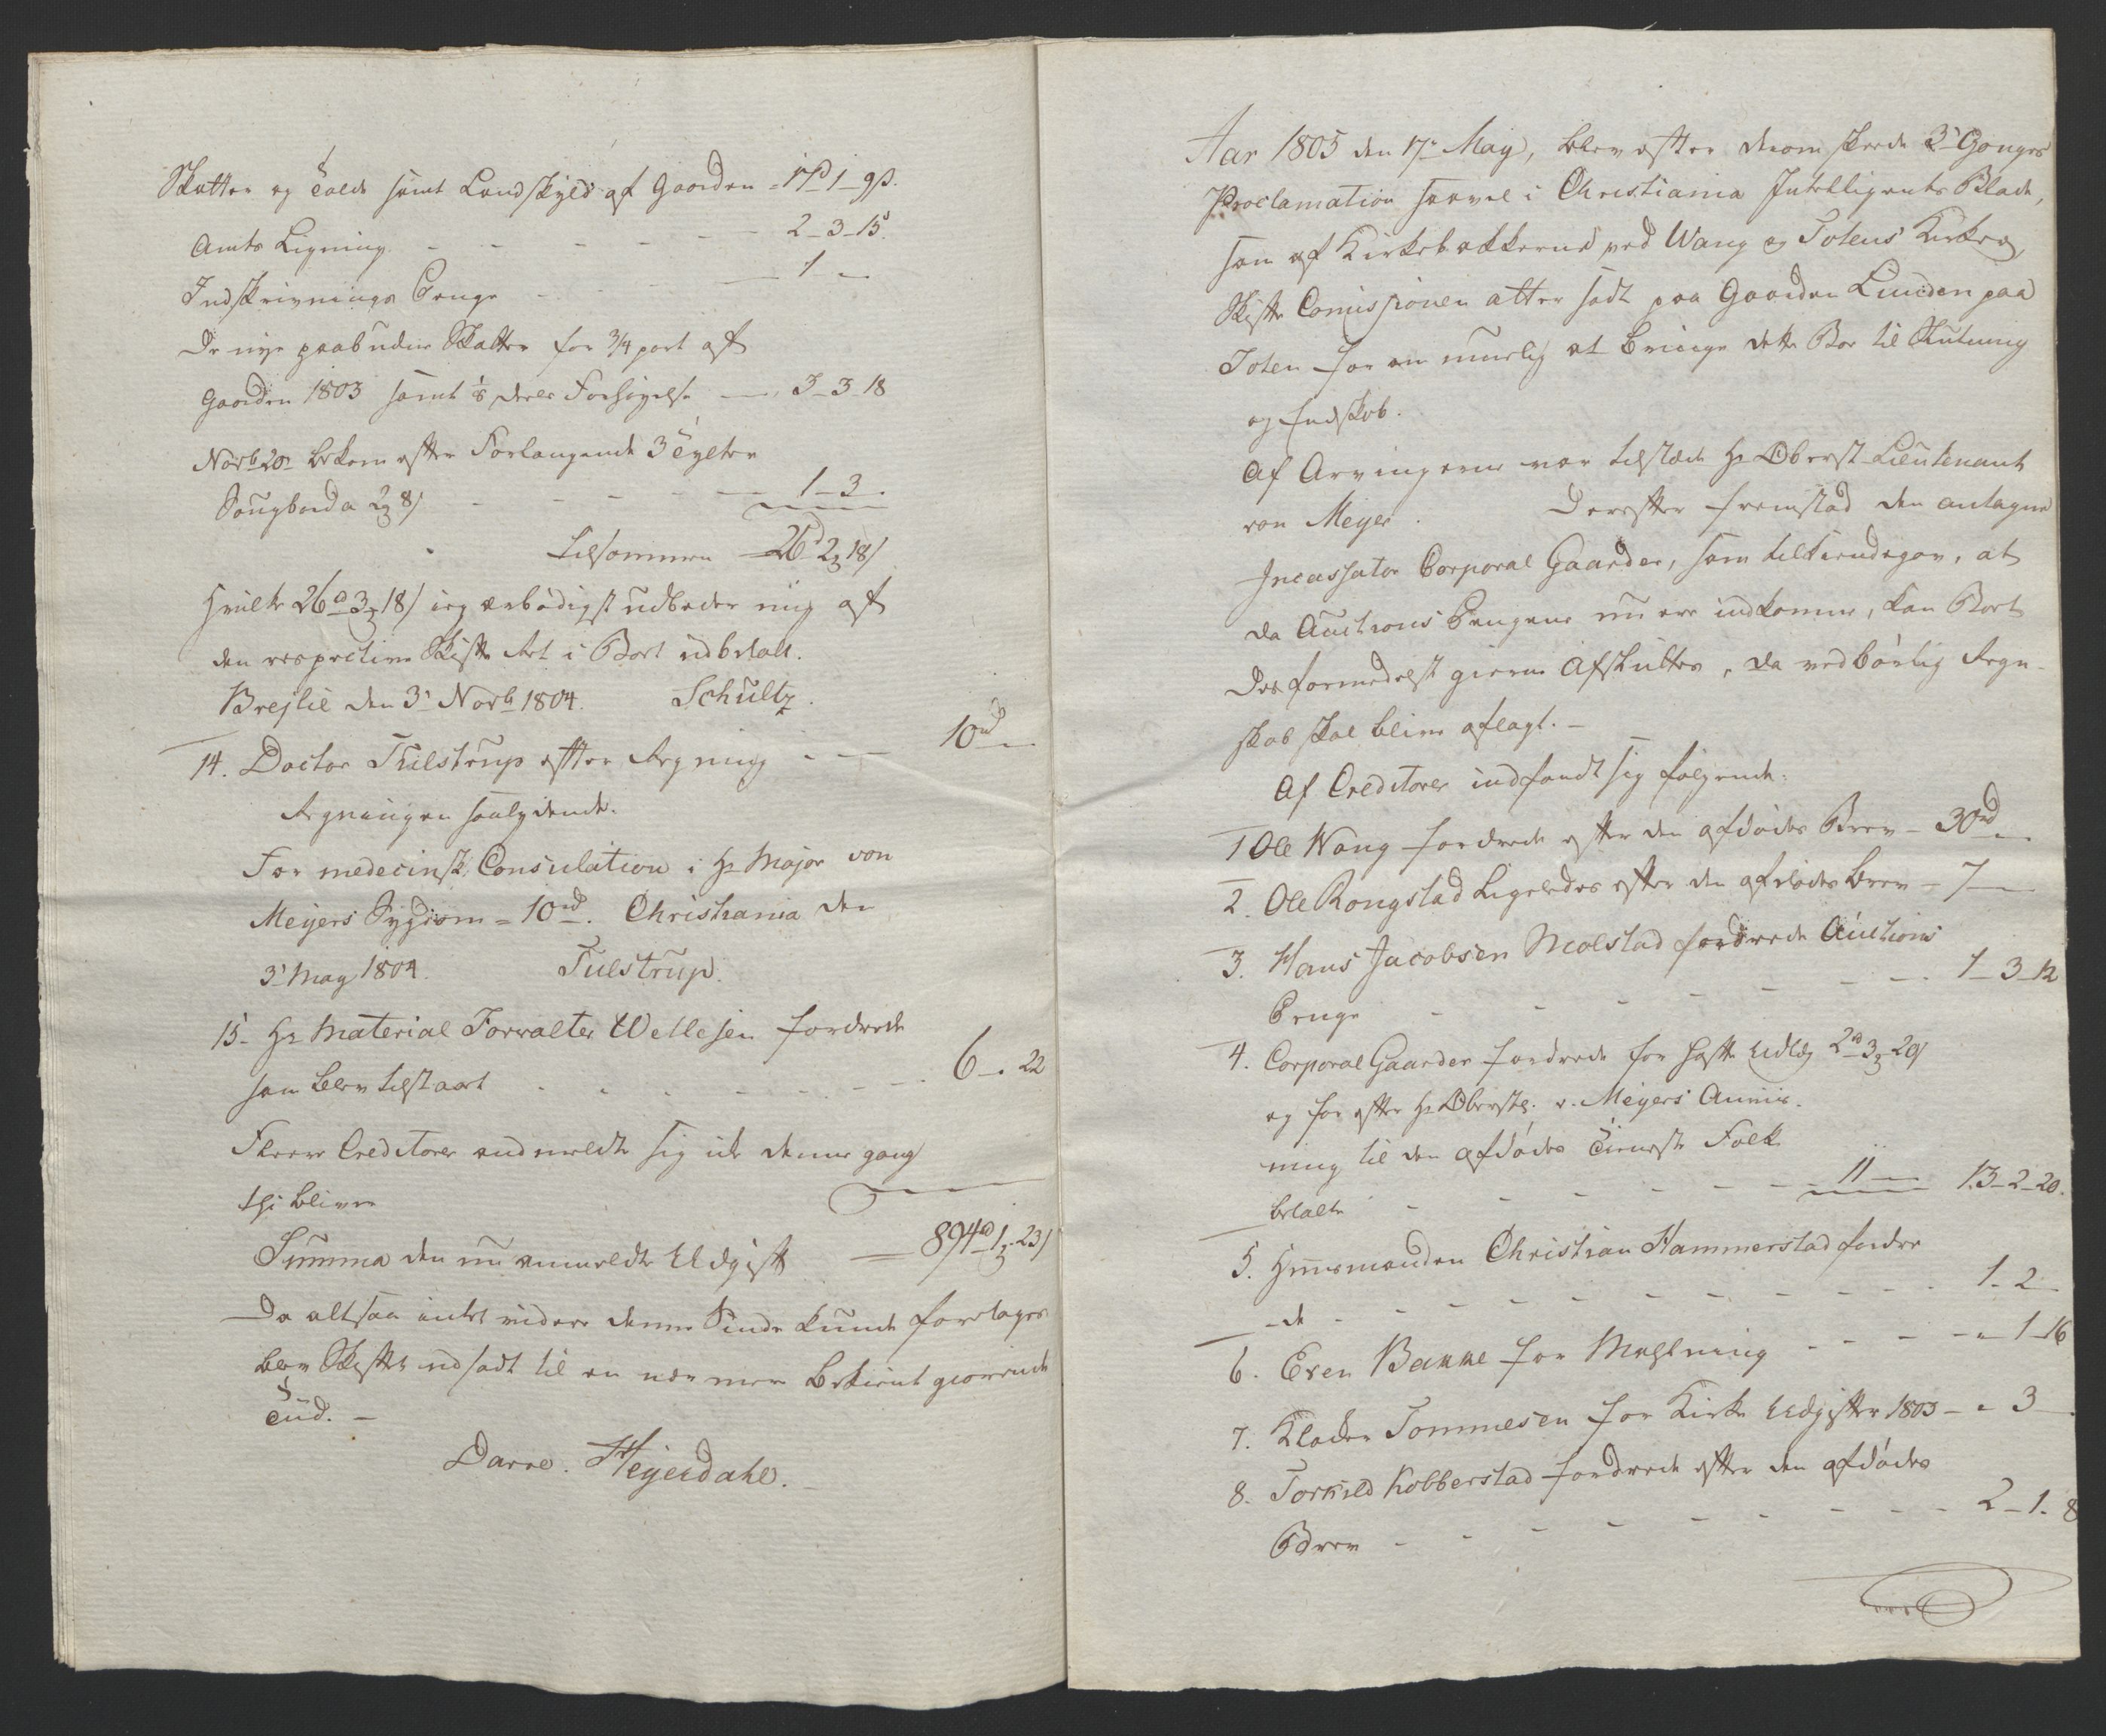 Skatter og Told samt Landskyld af Gaarden = 17d 1 - 9 s.
Amts Ligning - - - - - 2 - 3 - 15.
Indskrivnings Penge - - - - 1 -
De nye paabudne Skatter for 3/4 part af
Gaarden 1803 samt 1/8 deres Forhøyelse - 3 - 3 - 18
Novb 20de bekom efter Forlangende 3 Tylter
Saugbord a 2 8 s - - - - - 1 - 3 -
Tilsammen - 26d 2 18 s
Hvilke 26d 3 18 s ieg ærbödigst udbeder mig af
den respective Skifte Ret i Boet udbetalt.
Brejlie den 3 Novb 1804. Schultz.
14. Doctor Tulstrup efter Regning - - 10rd -
Regningen saalydende.
For medecinsk Consulation i Hr Major von
Meyers Sygdom = 10rd. Christiania den
3 May 1804. Tulstrup.
15. Hr Material Forvalter Wellesen fordrede
som blev tilstaaet - - - - - 6 - . 22
Fleere Creditorer anmeldte sig ikke denne gang
thi bliver
Summa den nu anmeldte Udgift = 894d 1 . 23 s
Da altsaa intet videre denne Sinde kunde foretages
blev Skiftet udsadt til en nærmere bekientgiørende
Tiid. -
Darre. Heyerdahl.
Aar 1805 den 17de May, blev efter derom skeede 3de Ganges
Proclamation saavel i Christiania Intelligents Blade,
som af Kirkebakkerne ved Wang og Totens Kirker,
Skifte Comissionen atter sadt paa Gaarden Lunden paa
Toten for om muelig at bringe dette Boe til Slutning
og Endskab.
Af Arvingerne var tilstæde Hr Oberst-Lieutenant
von Meyer. Derefter fremstod den antagne
Incassator Corporal Gaarder, som tilkiendegav, at
da Auctions Pengene nu ere indkomne, kan Boet
des formedelst gierne afsluttes, da vedbörlig Regn-
skab skal blive aflagt. -
Af Creditorer indfandt sig følgende:
1 Ole Wang fordrede efter den afdödes Brev - 30rd -
2. Ole Rongstad ligeledes efter den afdödes Brev - 7 -
3. Hans Jacobsen Molstad fordrede Auctions
Penge - - - - - - - 1 - 3 - 12
4. Corporal Gaarder fordrede for hafte Udlæg 2rd 3 20 s
og for efter Hr Oberstl. v. Meyers Anviis-
ning til den afdödes Tieneste Folk
betalte - - - - - - 11 - 13 - 2 - 20.
5. Huusmanden Christian Hammerstad fordre
-de - - - - - - - - - 1 - 2 -
6. Even Bakke for Meglning - - - - - 1 - 16
7. Klader Tommesen for Kirke Udgifter 1803 - - 3 -
8. Torkild Kobberstad fordrede efter den afdödes
Brev - - - - - - - - 2 - 1 - 8